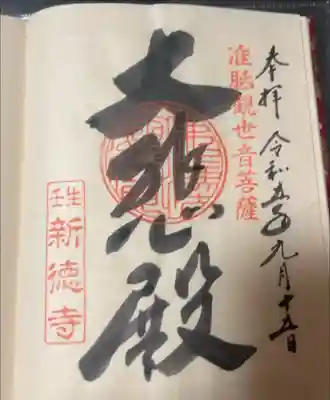 奉拝 令和五年九月十五日
准胝觀世音菩薩
大悲殿
壬生
新徳寺